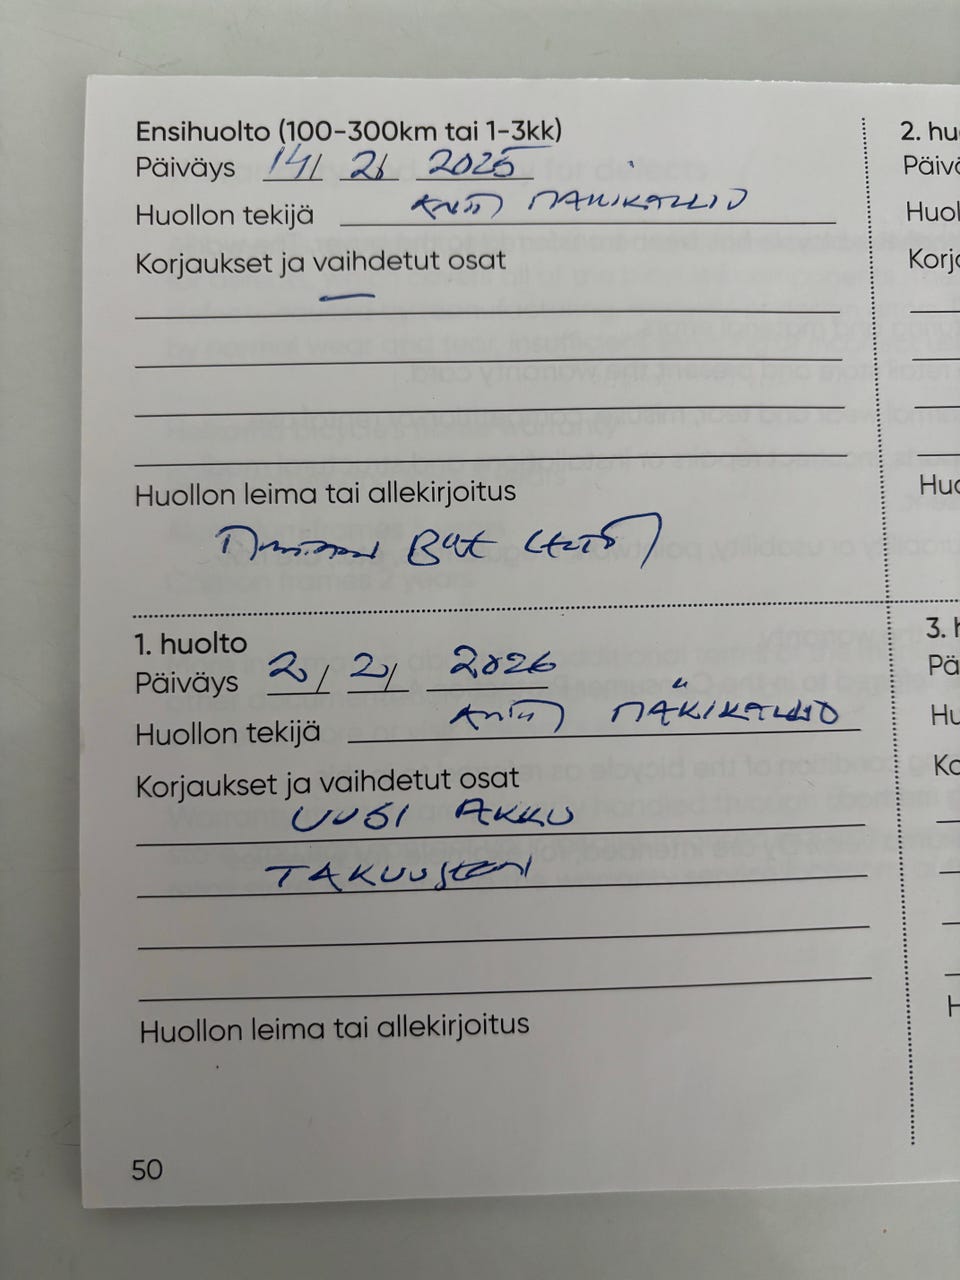 Ensihuolto (100-300km tai 1-3kk)
Päiväys 14/ 2/ 2025
Huollon tekijä Antti MÄKIKALLIO
Korjaukset ja vaihdetut osat
—
Huollon leima tai allekirjoitus
1. huolto
Päiväys 2/ 2/ 2026
Huollon tekijä Antti MÄKIKALLIO
Korjaukset ja vaihdetut osat
UUSI AKKU
TAKUUseen
Huollon leima tai allekirjoitus
50
2. hu
Päivä
Huol
Korjo
Huo
3. h
Pä
Hu
Ko
H